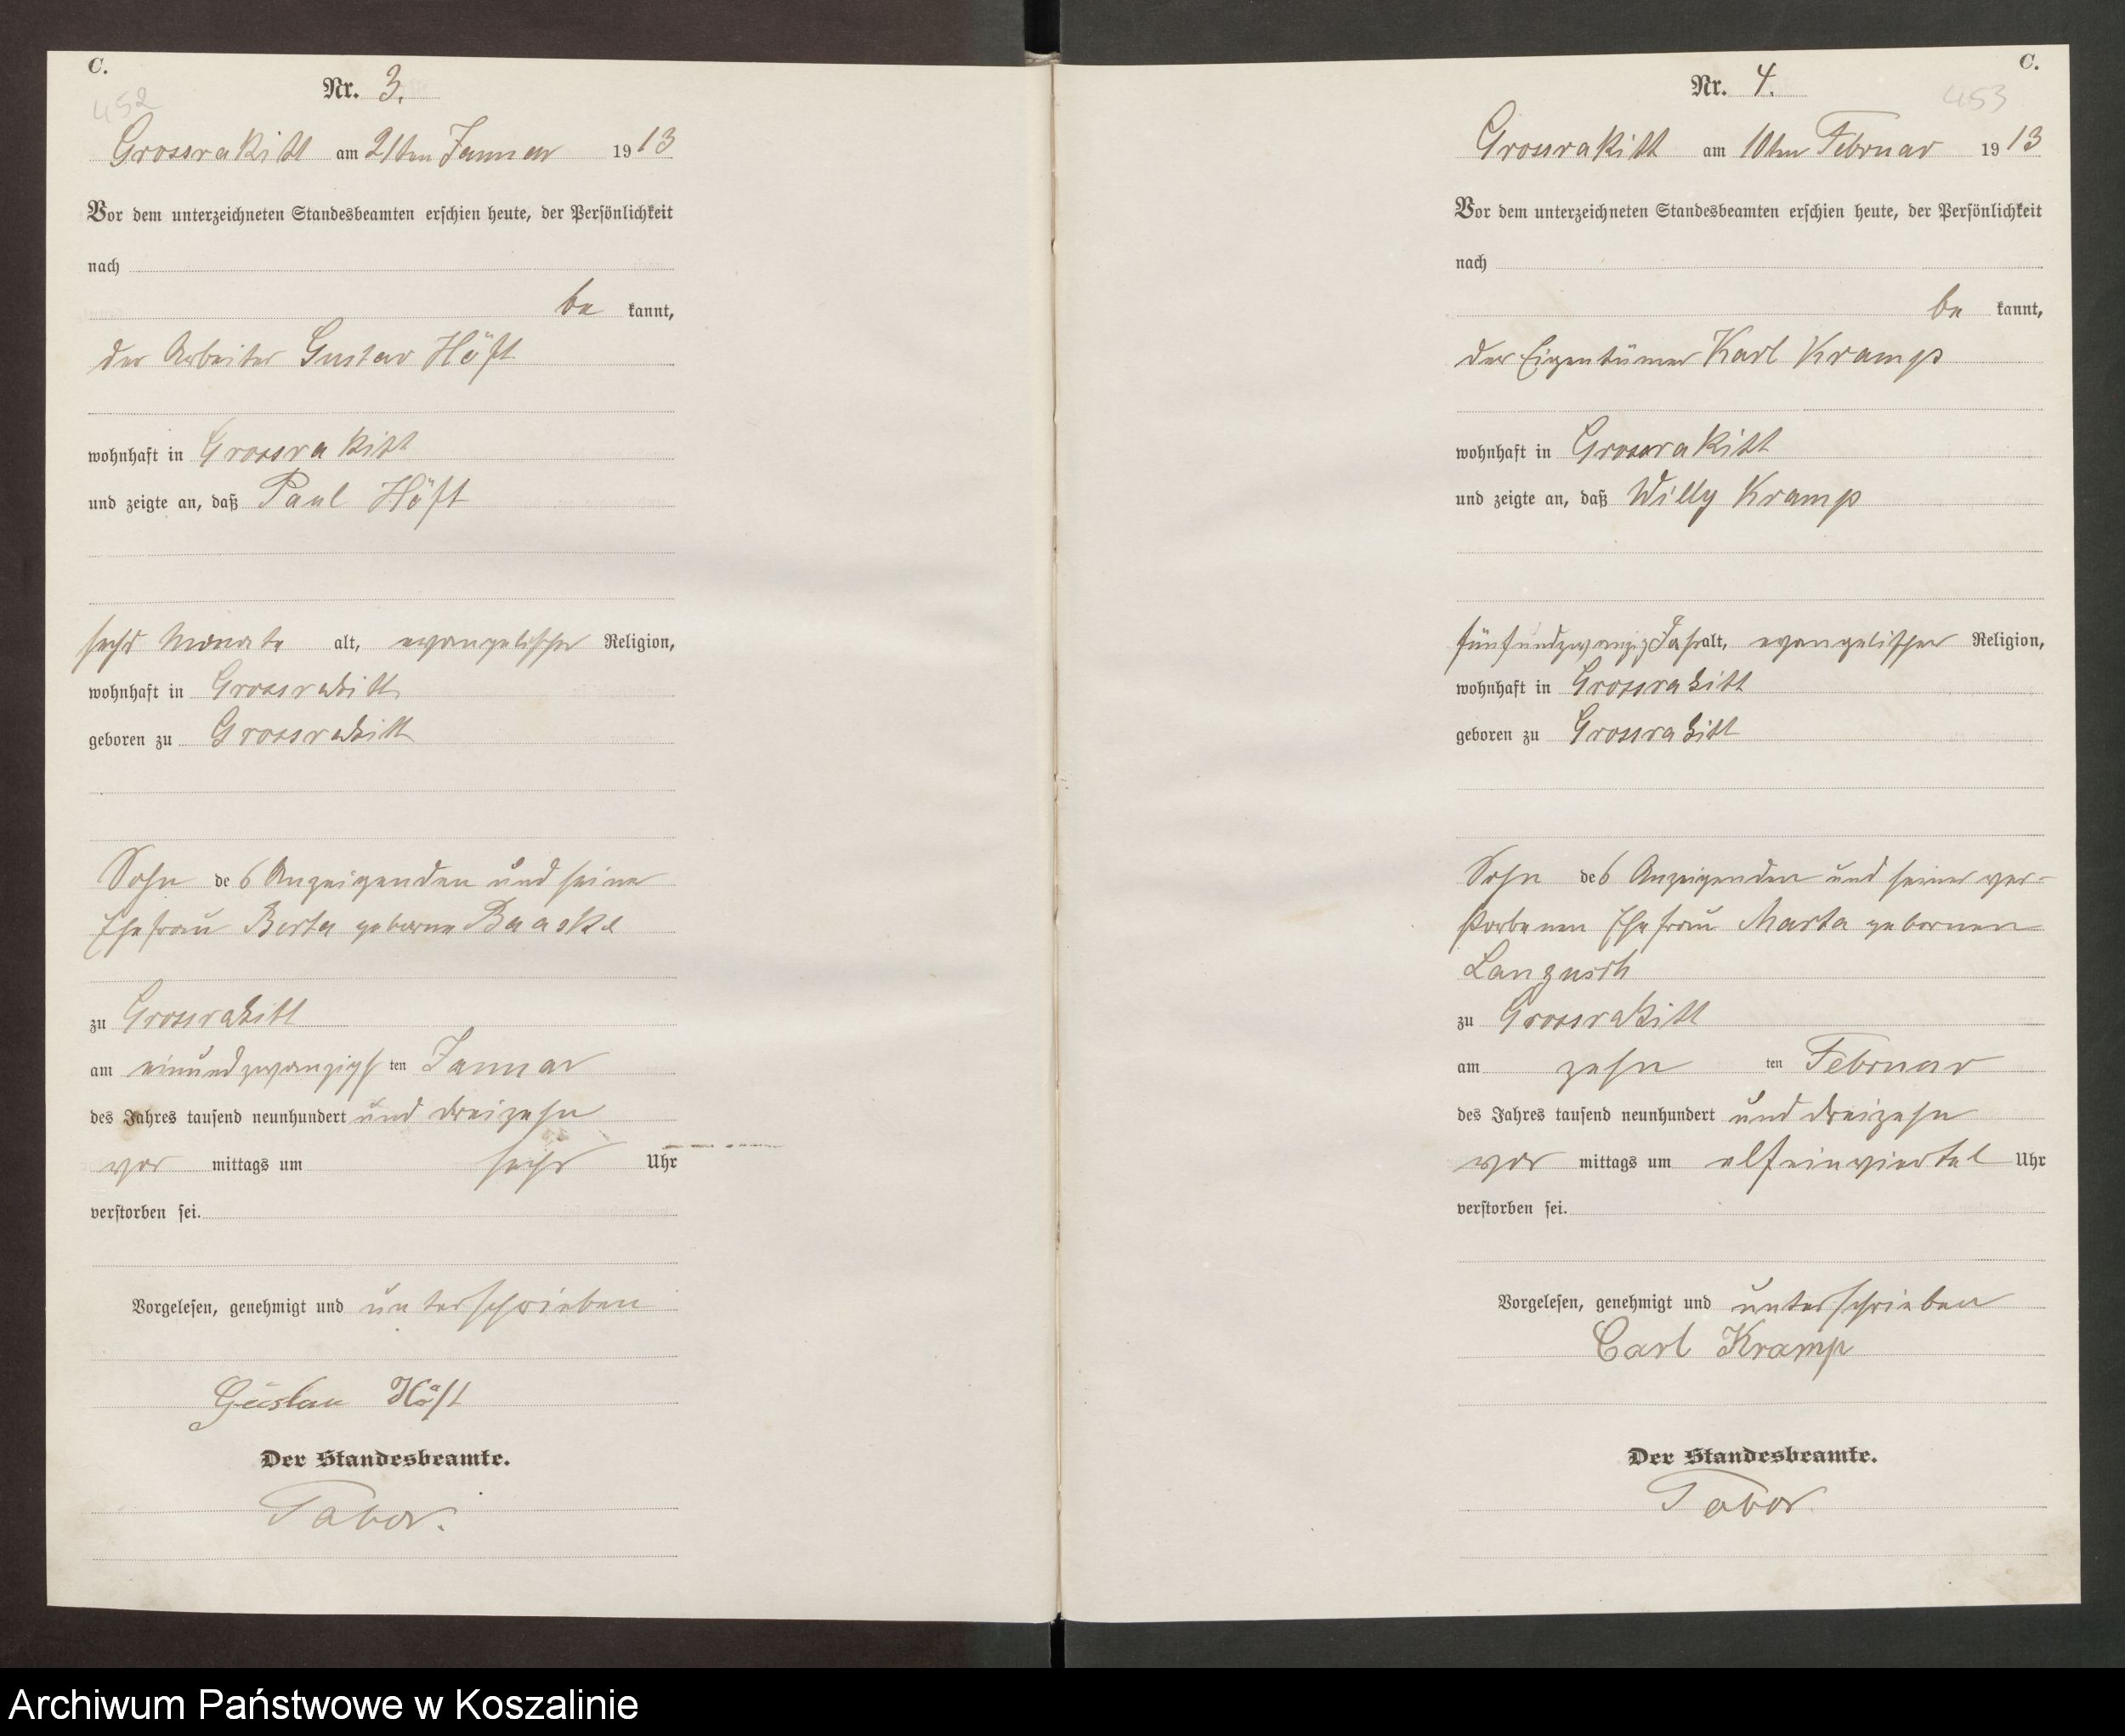 C.
452
Nr. 3.
Grossrakitt am 21ten Januar 1913
Vor dem unterzeichneten Standesbeamten erschien heute, der Persönlichkeit
nach
be kannt,
der Arbeiter Gustav Höft
wohnhaft in Grossrakitt
und zeigte an, daß Paul Höft
sechs Monate alt, evangelischer Religion,
wohnhaft in Grossrakitt
geboren zu Grossrakitt
Sohn des Anzeigenden und seiner
Ehefrau Berta geborne Baaske
zu Grossrakitt
am einundzwanzigsten Januar
des Jahres tausend neunhundert und dreizehn
vor mittags um sechs Uhr
verstorben sei.
Vorgelesen, genehmigt und unterschrieben
Gustav Höft
Der Standesbeamte.
Tabor.
C.
453
Nr. 4.
Grossrakitt am 10ten Februar 1913
Vor dem unterzeichneten Standesbeamten erschien heute, der Persönlichkeit
nach
be kannt,
der Eigentümer Karl Kramp
wohnhaft in Grossrakitt
und zeigte an, daß Willy Kramp
fünfundzwanzig Jahr alt, evangelischer Religion,
wohnhaft in Grossrakitt
geboren zu Grossrakitt
Sohn des Anzeigenden und seiner ver-
storbenen Ehefrau Marta gebornen
zu Grossrakitt
am zehn ten Februar
des Jahres tausend neunhundert und dreizehn
vor mittags um elfeinviertel Uhr
verstorben sei.
Vorgelesen, genehmigt und unterschrieben
Carl Kramp
Der Standesbeamte.
Tabor.
Archiwum Państwowe w Koszalinie